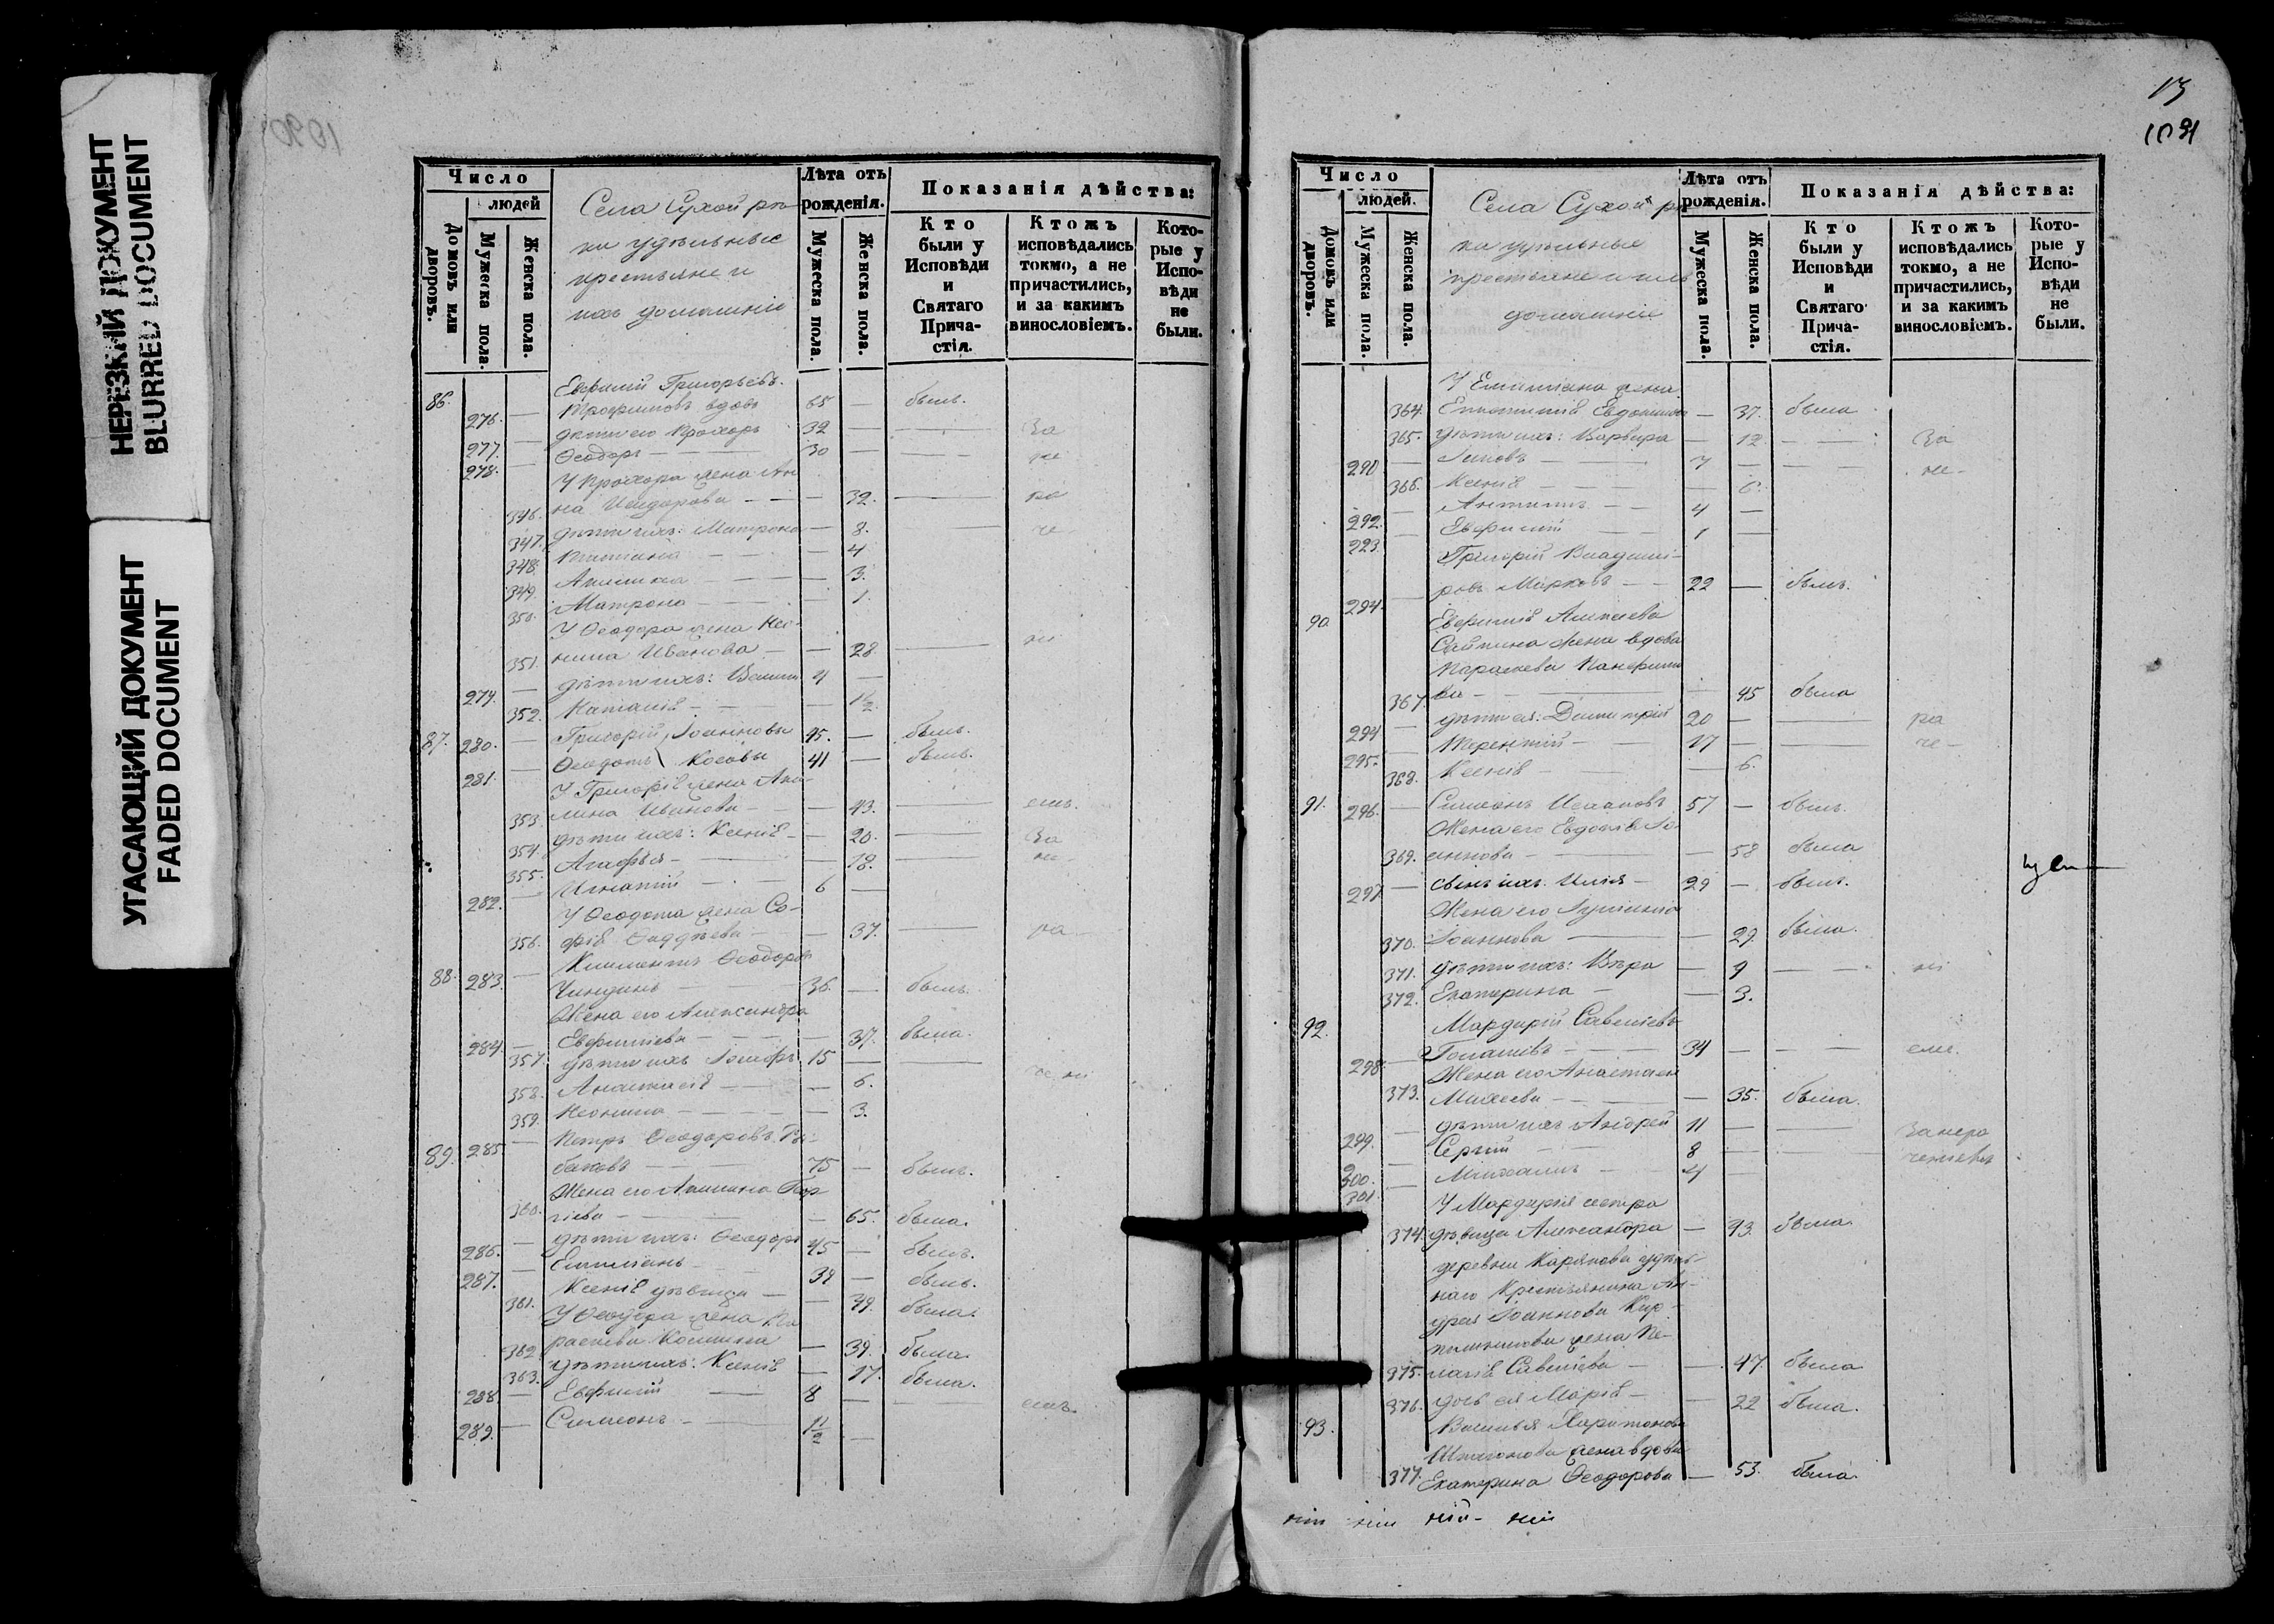 НЕРЕЗКИЙ ДОКУМЕНТ
BLURRED DOCUMENT
УГАСАЮЩИЙ ДОКУМЕНТ
FADED DOCUMENT
Число
людей
Домовъ или дворовъ.
Мужеска пола.
Женска пола.
Села Сухой рѣ-
ки удѣльные
крестьяне и
ихъ домашніе
Лѣта отъ рожденія.
Мужеска пола.
Женска пола.
Показанія дѣйства:
Кто были у Исповѣди и Святаго Прича-стія.
Ктожъ исповѣдались токмо, а не причастились, и за какимъ винословіемъ.
Кото-рые у Испо-вѣди не были.
86. Евфимій Григорьевъ
276. — Трофимовъ вдовъ 65 — былъ.
277. — дѣти его Прохоръ 32 — — за
278. — Ѳеодоръ — 30 — — не
У Прохора жена Ан
346. на Исидорова — — 32. — ра
347. дѣти ихъ: Матрона — 8. — че
348. Татіана — — 4
349. Акилина — — 3.
350. Матрона — — 1.
У Ѳеодора жена Нео-
351. нила Иванова — — 28. — ні
279. — дѣти ихъ: 4 —
352. Наталія — — 1 1/2
87. 280. — Григорій Іоанновы 45. — былъ.
281. — Ѳеодотъ Косовы 41 — былъ.
У Григорія жена Аки-
353. лина Иванова — — 43. — емъ.
354. дѣти ихъ: Ксенія — — 20. — За
355. Агафья — — 18. — не
282. — Игнатій — 6 —
У Ѳеодота жена Со-
356. фія Ѳаддѣева — — 37. — ра
Климентъ Ѳеодоровъ
88. 283. — Чиндинъ — 36. — былъ.
Жена его Александра
284. 357. Евфиміева — — 37. была.
дѣти ихъ 15 — —
358. Анастасія — — 6.
359. Неонила — — 3.
89. 285. — Петръ Ѳеодоровъ Ры-
баковъ — 75 — былъ.
Жена его Акилина Геор
360. гіева — — 65. была.
286. — дѣти ихъ: Ѳеодоръ 45 — былъ.
287. — Емиліанъ — 39 — былъ.
361. Ксенія дѣвица — — 49. была.
У Ѳеодора жена Па
362. раскева Космина — 39. была.
363. дѣти ихъ: Ксенія — 17. была.
288. — Евфимій — 8 — — емъ.
289. — Симеонъ — 1 1/2 —
13
1091
Число
людей.
Домовъ или дворовъ.
Мужеска пола.
Женска пола.
Села Сухой рѣ
ки удѣльные
крестьяне и ихъ
домашніе
Лѣта отъ рожденія.
Мужеска пола.
Женска пола.
Показанія дѣйства:
Кто были у Исповѣди и Святаго Прича-стія.
Ктожъ исповѣдались токмо, а не причастились, и за какимъ винословіемъ.
Кото-рые у Испо-вѣди не были.
У Емиліана жена
364. Евдокимова — 37. была
365. дѣти ихъ: Варвара — 12. — — За
290 — Іаковъ — 7 — — не-
366. Ксенія — — 6.
292. — Антипъ — 4 —
293 — Евфимій — 1 —
Григорій Владимі-
294. — ровъ Марковъ — 22 — былъ.
90 Евфимія Алексѣева
жена вдова
Параскева Панфило
367. ва — — 45 была
294 — дѣти ея: Димитрій 20 — — ра
295. — Терентій — 17 — — че-
368. Ксенія — — 6.
91. 296. — Симеонъ 57 — былъ.
Жена его Евдокія Іо-
369. аннова — — 58 была
297. — сынъ ихъ Илія — 29 — былъ.
Жена его Лукина
370. Іоаннова — — 29. была.
371. дѣти ихъ: Вѣра — 9 — — ні
372. Екатерина — — 3.
92. Мардарій Савеліевъ
298. — 34 — — емъ.
Жена его Анастасія
373. Михеева — — 35. была.
299. — дѣти ихъ Андрей 11 — —
300. — Сергій — 8 — —
301. — Михаилъ — 4 —
У Мардарія сестра
374. дѣвица Александра — 43. была.
деревни Карякова удѣль-
наго Крестьянина Ан-
дрея Іоаннова Кир-
жена Пе-
375. лагія Савеліева — — 47. была
376. дочь ея Марія — — 22 была.
93. Василья Харитонова
жена вдова
377. Екатерина Ѳеодорова — 53. была.